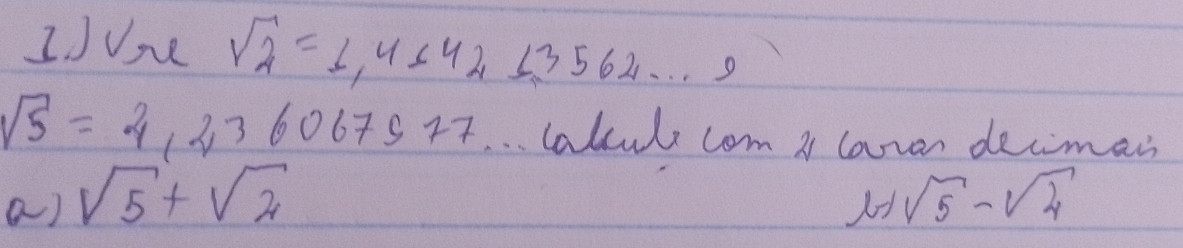 1.) Use √2 = 1,414213562... e
√5 = 2,236067977... calcule com 2 casas decimais
a) √5 + √2 b) √5 - √2